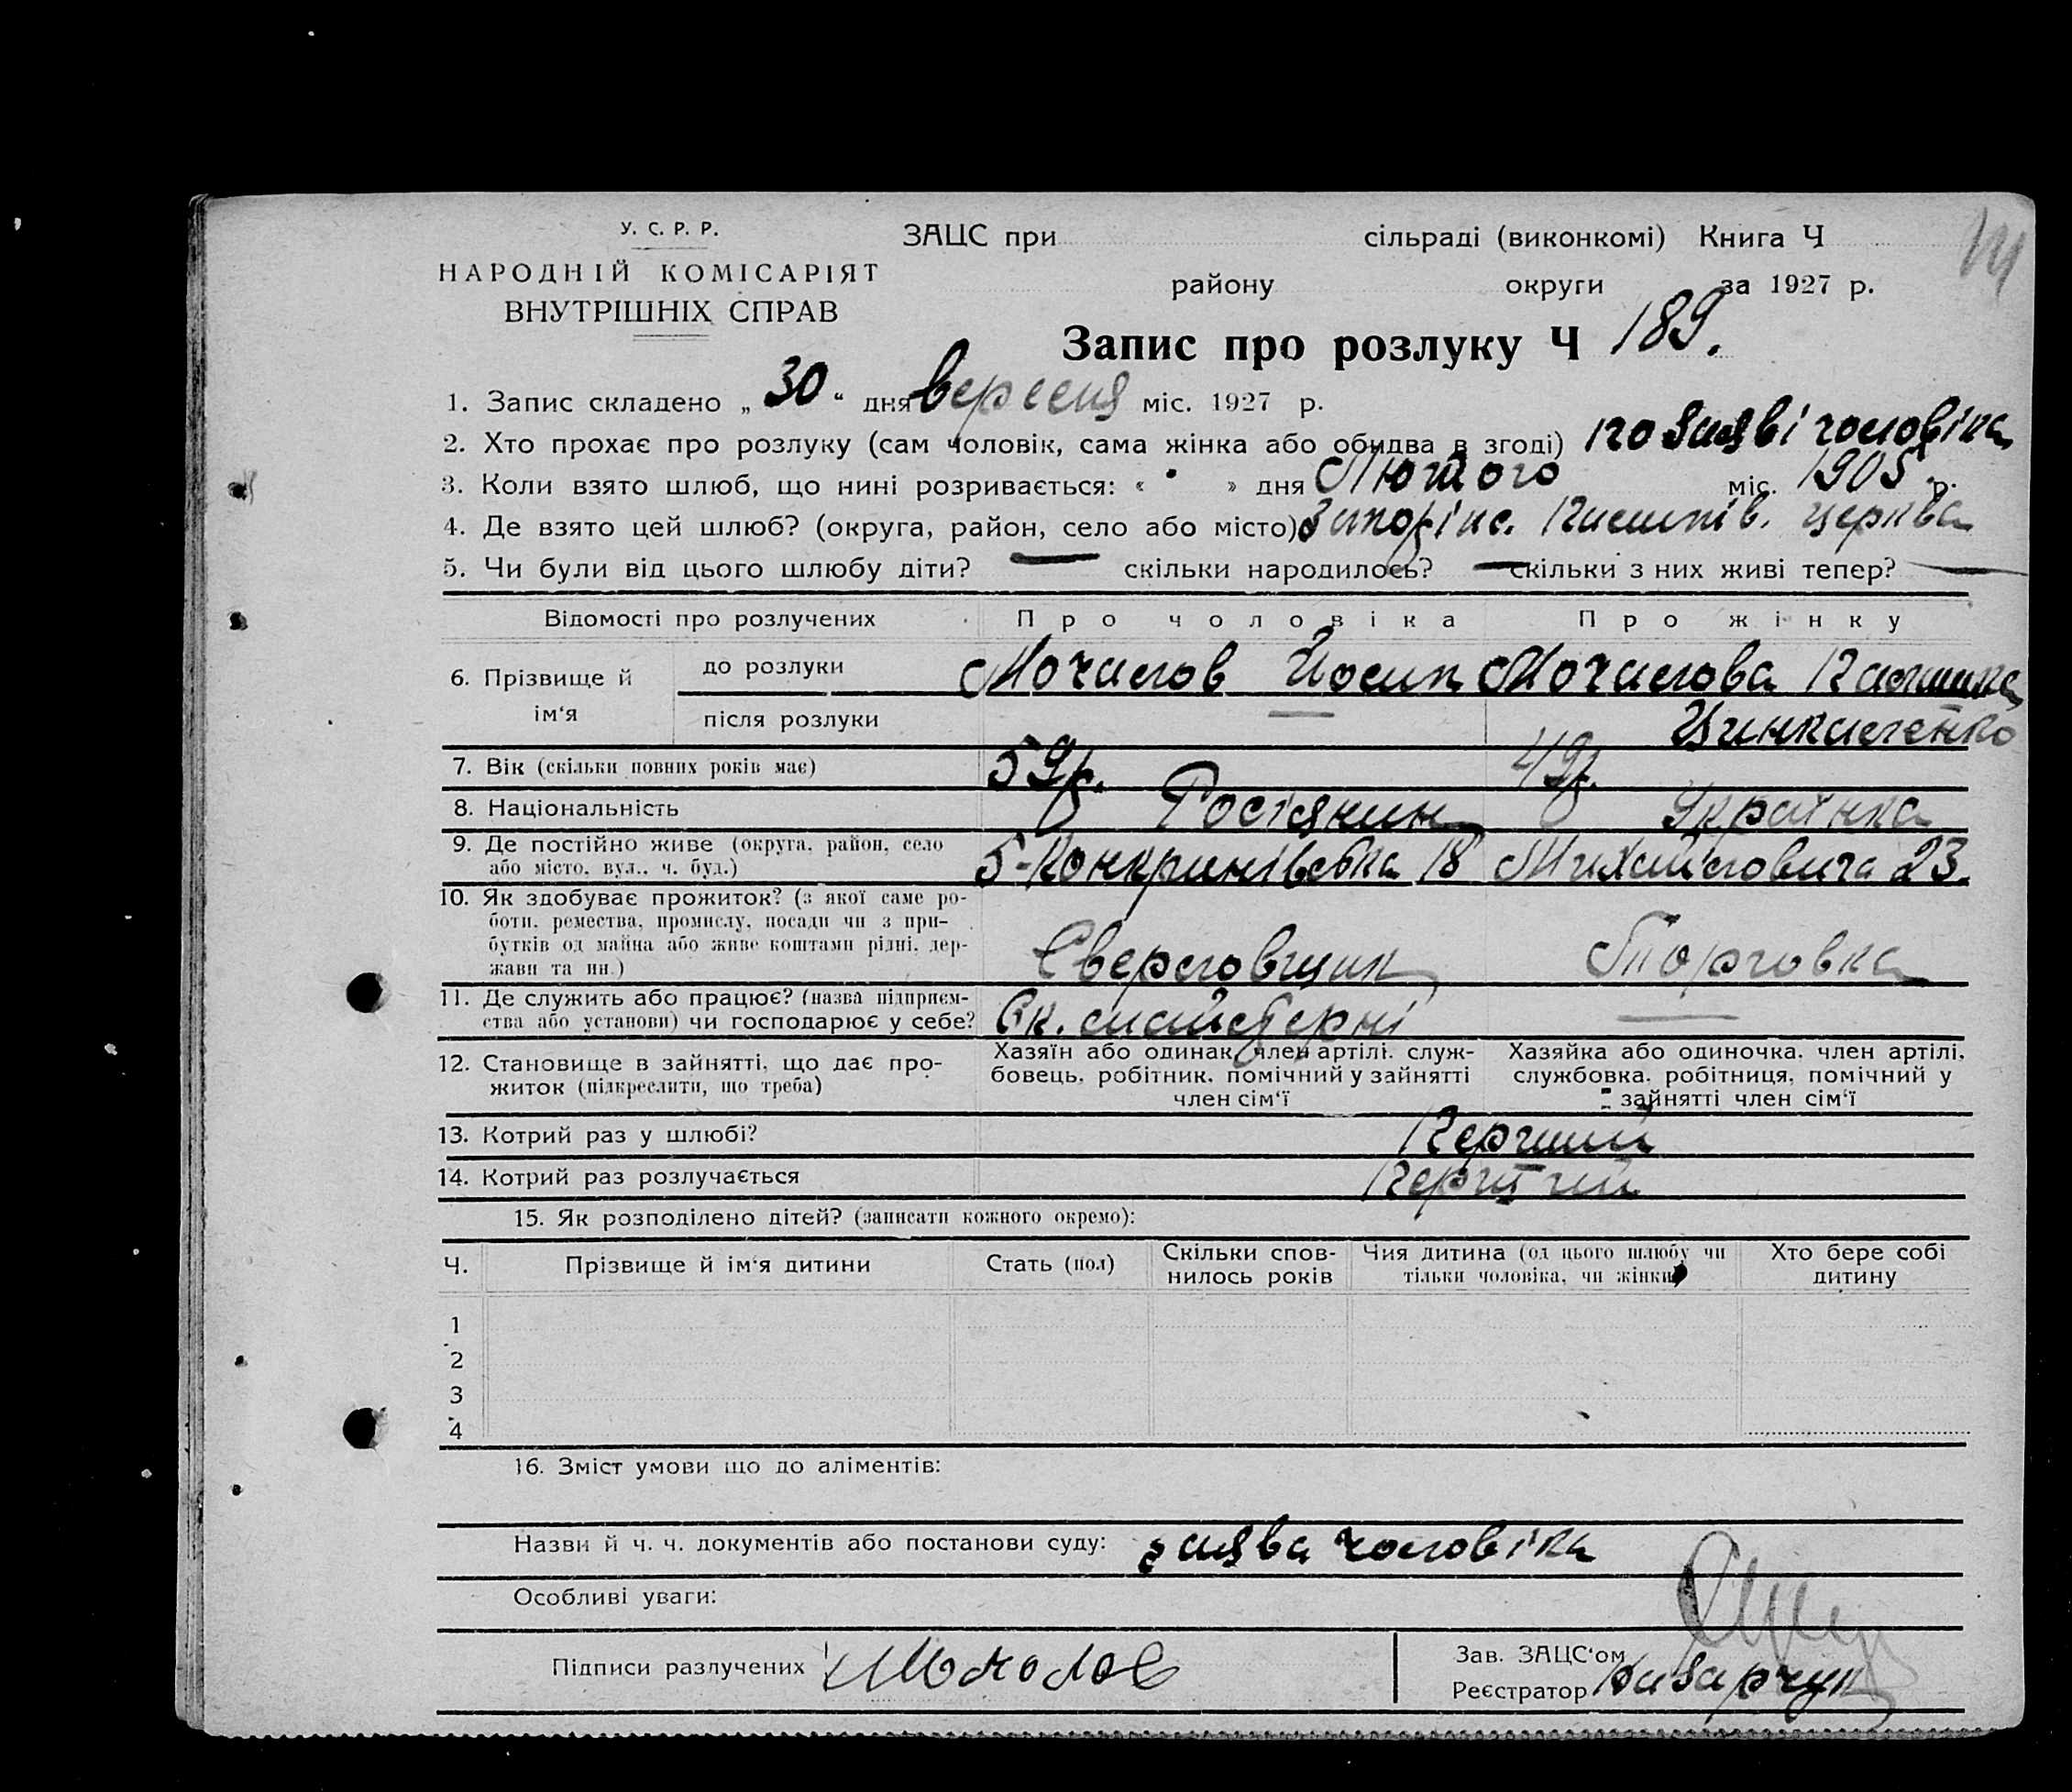 У. С. Р. Р.
НАРОДНІЙ КОМІСАРІЯТ
ВНУТРІШНІХ СПРАВ
ЗАЦС при сільраді (виконкомі) Книга Ч
району округи за 1927 р.
Запис про розлуку Ч 189.
1. Запис складено „ 30 " дня вересня міс. 1927 р.
2. Хто прохає про розлуку (сам чоловік, сама жінка або обидва в згоді) по заяві чоловіка
3. Коли взято шлюб, що нині розривається: « " » дня Лютого міс. 1905 р.
4. Де взято цей шлюб? (округа, район, село або місто) церква
5. Чи були від цього шлюбу діти? — скільки народилось? — скільки з них живі тепер? —
Відомості про розлучених Про чоловіка Про жінку
6. Прізвище й ім'я до розлуки Мочалов Йосип Мочалова
після розлуки —
7. Вік (скільки повних років має) 59 р. 49 р.
8. Національність Росіянин Українка
9. Де постійно живе (округа, район, село
або місто, вул., ч. буд.) 18 Михайловича 23.
10. Як здобуває прожиток? (з якої саме ро-
боти, ремества, промислу, посади чи з при-
бутків од майна або живе коштами рідні, дер-
жави та ин.) Сверловщик Торговка
11. Де служить або працює? (назва підприєм-
ства або установи) чи господарює у себе? майстерні —
12. Становище в зайнятті, що дає про-
житок (підкреслити, що треба)
Хазяїн або одинак, член артілі, служ-
бовець, робітник, помічний у зайнятті
член сім'ї
Хазяйка або одиночка, член артілі,
службовка, робітниця, помічний у
зайнятті член сім'ї
13. Котрий раз у шлюбі? Перший
14. Котрий раз розлучається Перший
15. Як розподілено дітей? (записати кожного окремо):
Ч. Прізвище й ім'я дитини Стать (пол) Скільки спов-
нилось років Чия дитина (од цього шлюбу чи
тільки чоловіка, чи жінки) Хто бере собі
дитину
1
2
3
4
16. Зміст умови що до аліментів:
Назви й ч. ч. документів або постанови суду: заява чоловіка
Особливі уваги:
Підписи разлучених Мочалов
Зав. ЗАЦС'ом
Реєстратор